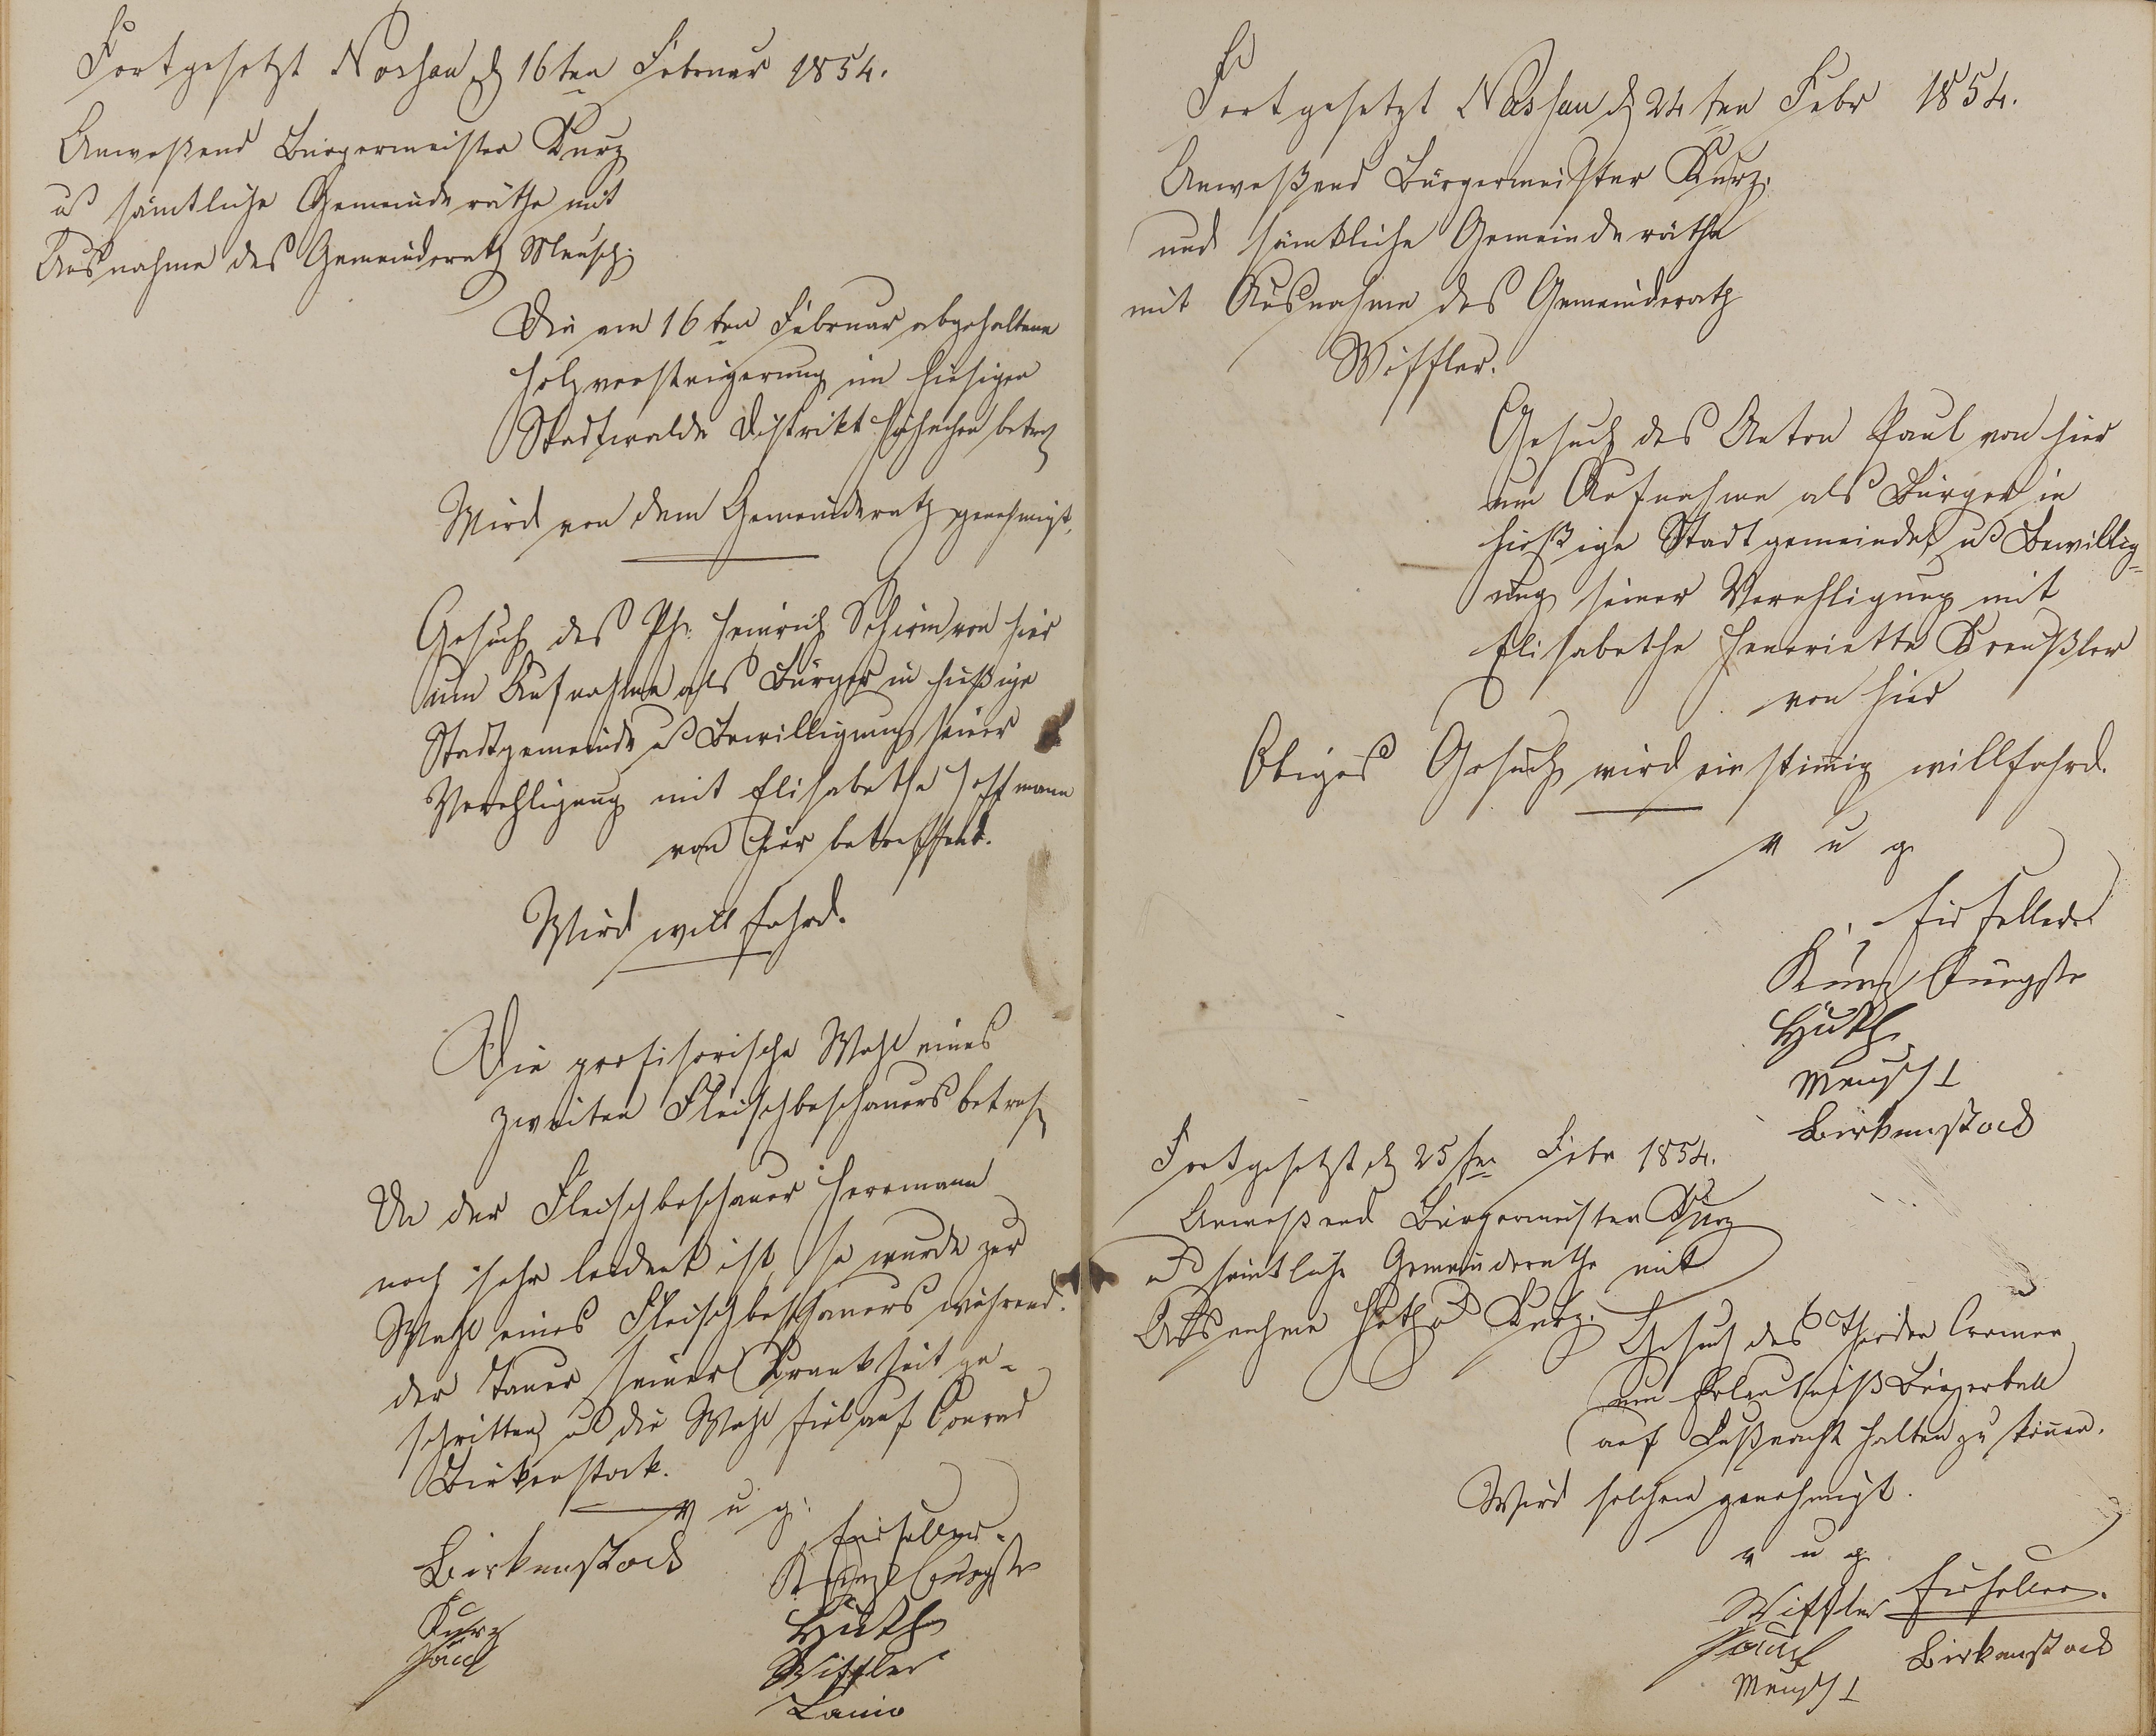 Fortgesetzt Nassau d 16ten Februar 1854.
Anweßend Bürgermeister Kurz
u sämtliche Gemeinderäthe mit
Ausnahme des Gemeinderath Mensch.
Die am 16ten Februar abgehaltene
Holzversteigerung im hiesigen
Stadtwalde Distrikt betref
Wird von dem Gemeinderath genehmigt.
Gesuch des Ph. Heinrich Schirm von hier
um Aufnahme als Bürger in hießige
Stadtgemeinde u Bewilligung seiner
Verehligung mit Elisabethe Hoffmann
von hier betreffend.
Wird willfahrd.
Die profisorische Wahl eines
zweiten Fleischbeschauers betref
Da der Fleischbeschauer Herrmann
noch sehr leident ist, so wurde zur
Wahl eines Fleischbeschauers während
der Dauer seiner Krankheit ge-
schritten u die Wahl fiel auf Conrad
Birkenstock.
v u g.
Birkenstock
Kurz
Paul
Kurz Bürgstr
Huth
Wissler
Lanio
Fortgesetzt Nassau d 24ten Febr 1854.
Anweßend Bürgermeister Kurz.
und sämtliche Gemeinderäthe
mit Ausnahme des Gemeinderath
Wissler.
Gesuch des Anton Paul von hier
um Aufnahme als Bürger in
hießige Stadtgemeinde u Bewillig-
ung seiner Verehligung mit
Elisabethe Henriette Kreußler
von hier
Obiges Gesuch wird einstimig willfahrd.
v u g
Kurz Bürgstr
Huth
Mensch
Birkenstock
Fortgesetzt d 25ten Febr 1854.
Anweßend Bürgermeister Kurz
u sämtliche Gemeinderäthe mit
Ausnahme Huth u Kurz.
Gesuch des Theodor Cramer
um Erlaubniß Bürgerball
auf Faßnacht halten zu können.
Wird solchem genehmigt.
v u g
Wissler
Paul
Mensch
Birkenstock